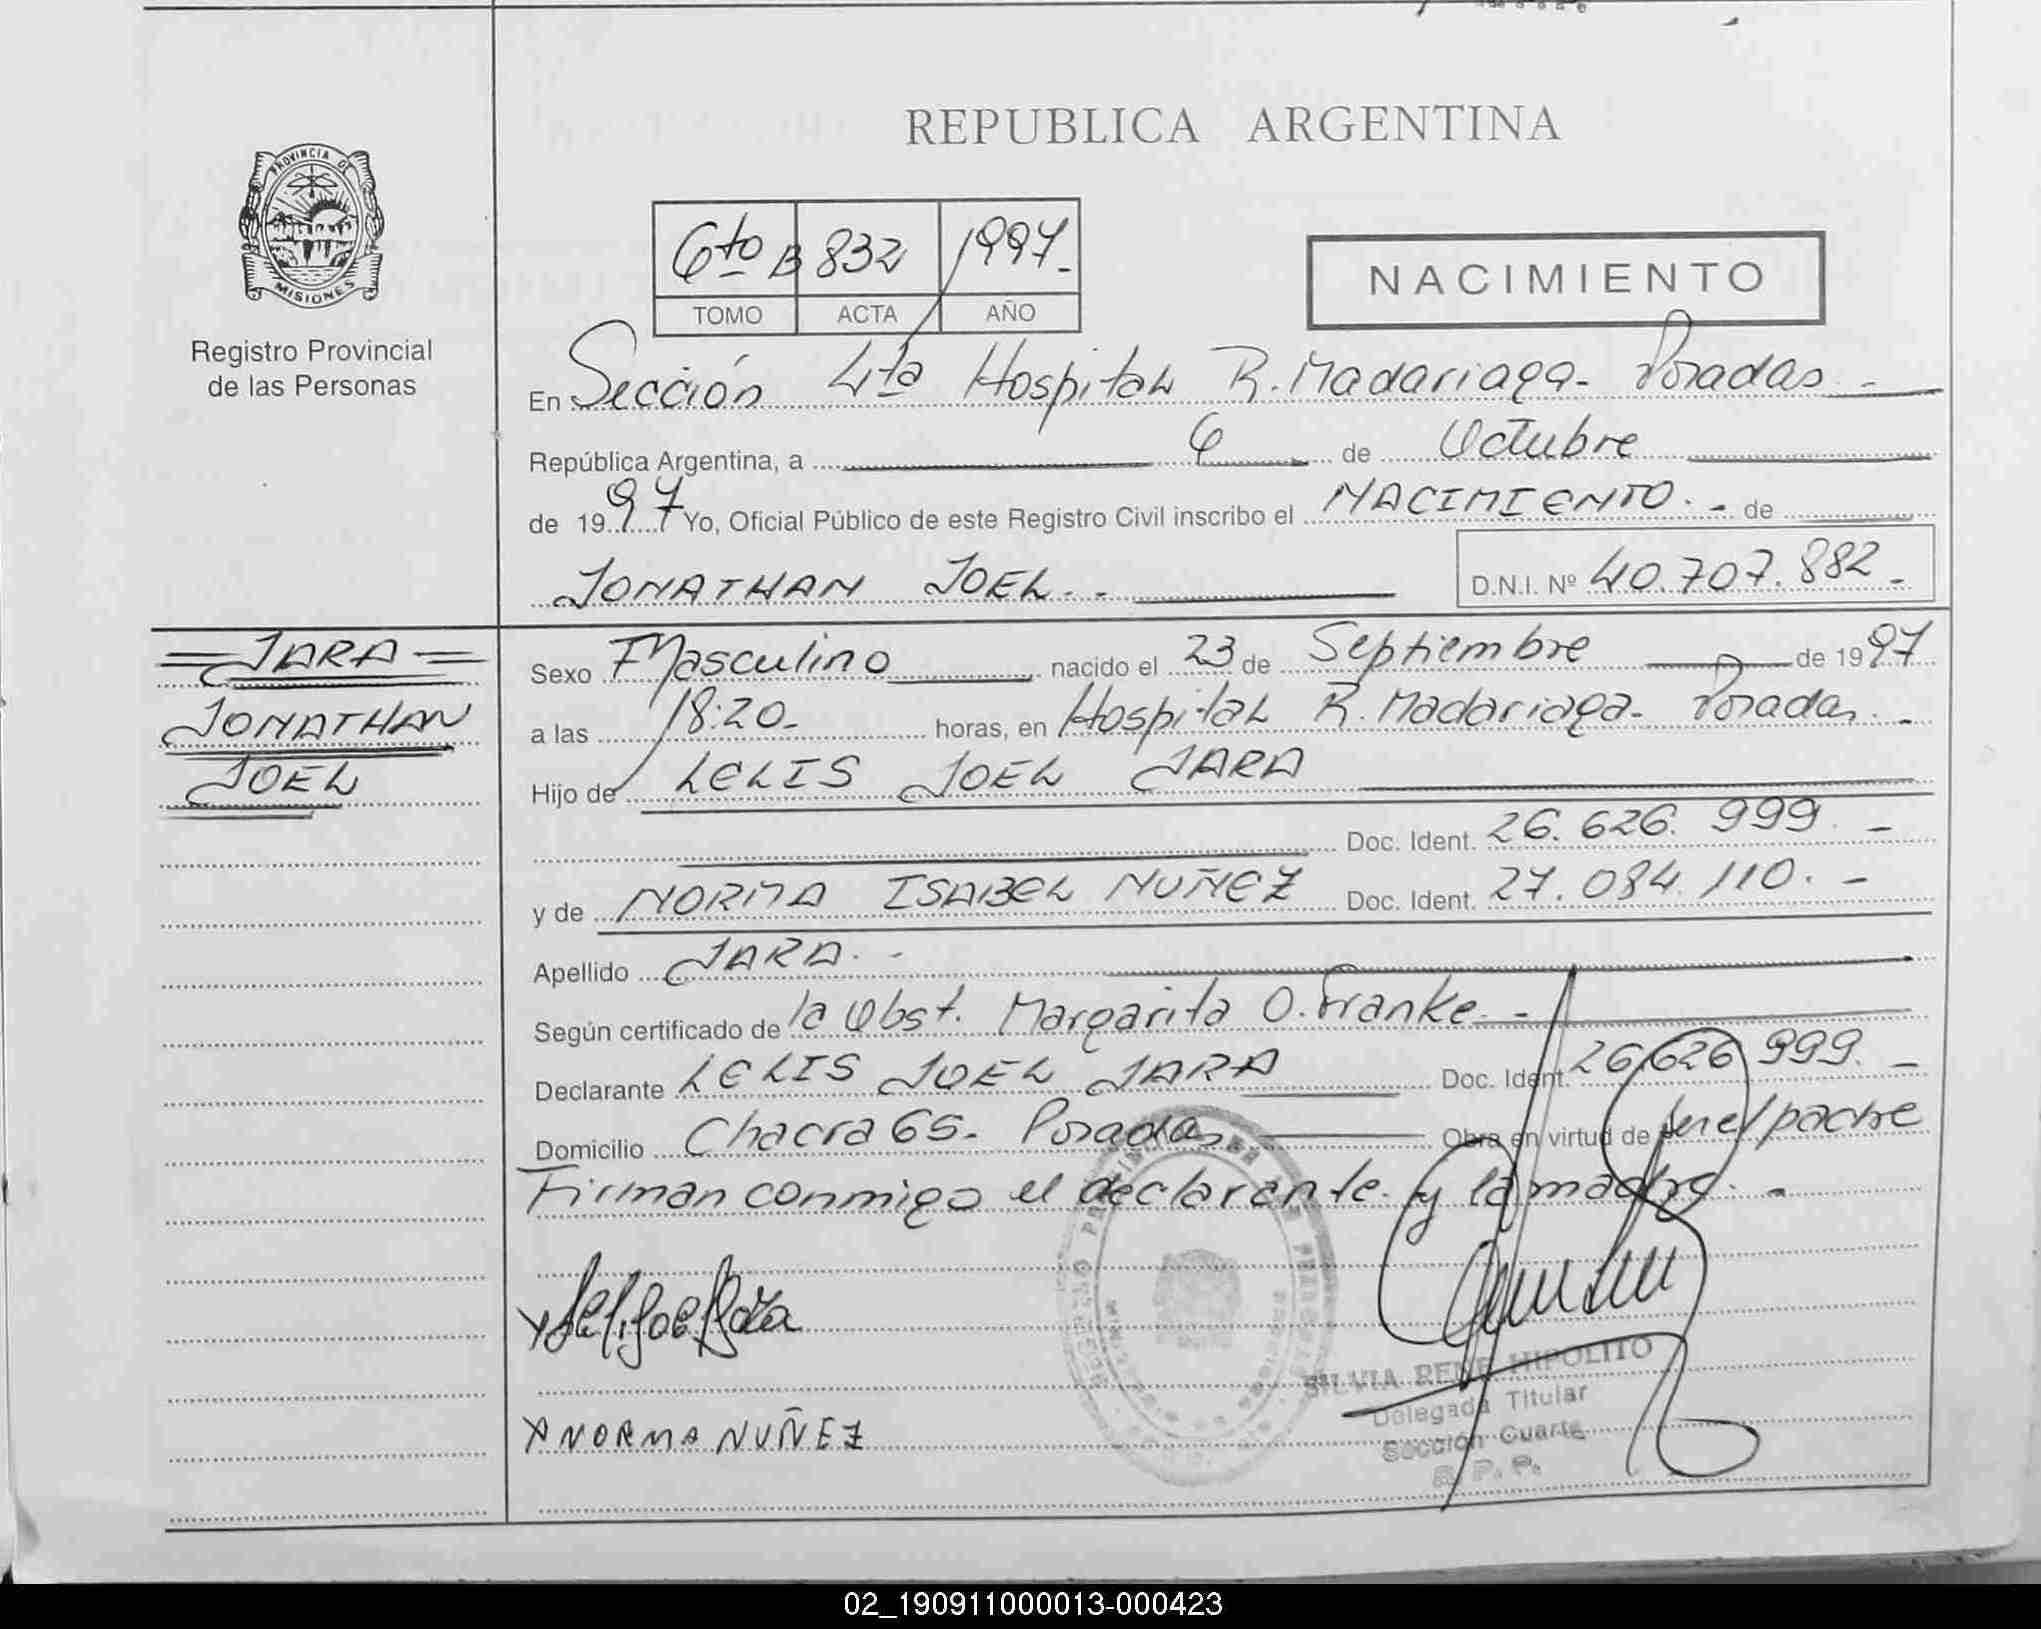 REPUBLICA ARGENTINA
PROVINCIA DE
MISIONES
Registro Provincial
de las Personas
6to B 832 1997.
TOMO ACTA AÑO
NACIMIENTO
En Sección 4ta Hospital R. Madariaga- Posadas. -
República Argentina, a 6 de Octubre
de 1997 Yo, Oficial Público de este Registro Civil inscribo el NACIMIENTO. - de
JONATHAN JOEL. - D.N.I. Nº 40.707.882 -
JARA
JONATHAN
JOEL
Sexo Masculino nacido el 23 de Septiembre de 1997
a las 18:20- horas, en Hospital R. Madariaga- Posadas. -
Hijo de LELIS JOEL JARA
Doc. Ident. 26.626.999. -
y de NORMA ISABEL NUÑEZ Doc. Ident. 27.084.110. -
Apellido JARA. -
Según certificado de la Obst. Margarita O. Franke. -
Declarante LELIS JOEL JARA Doc. Ident. 26626999. -
Domicilio Chacra 65- Posadas Obra en virtud de ser el padre
Firman conmigo el declarante y la madre. -
X NORMA NUÑEZ
SILVIA RENE HIPOLITO
Delegada Titular
Sección Cuarta
R. P. P.
02_190911000013-000423